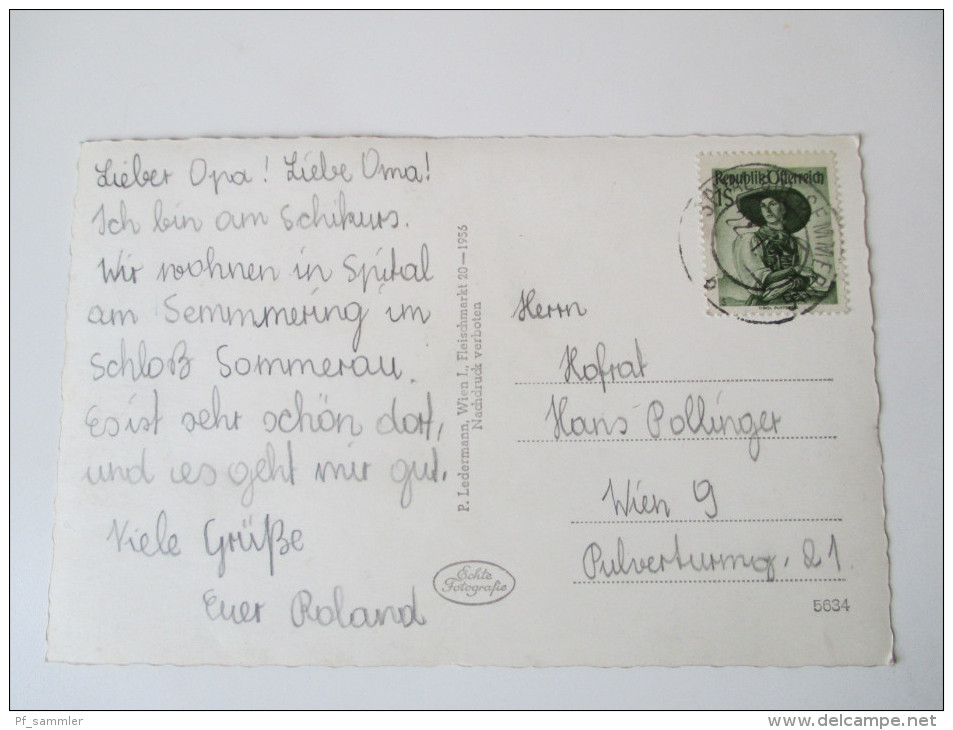 Lieber Opa! Liebe Oma!
Ich bin am Schikurs.
Wir wohnen in Spital
am Semmering im
Schloß Sommerau.
Es ist sehr schön dort,
und es geht mir gut.
Viele Grüße
Euer Roland
P. Ledermann, Wien I., Fleischmarkt 20—1956
Nachdruck verboten
Echte
Fotografie
Republik Österreich
1S
Herrn
Hofrat
Hans Pollinger
Wien 9
Pulverturmg. 21
5634
Pf_sammler
www.delcampe.net